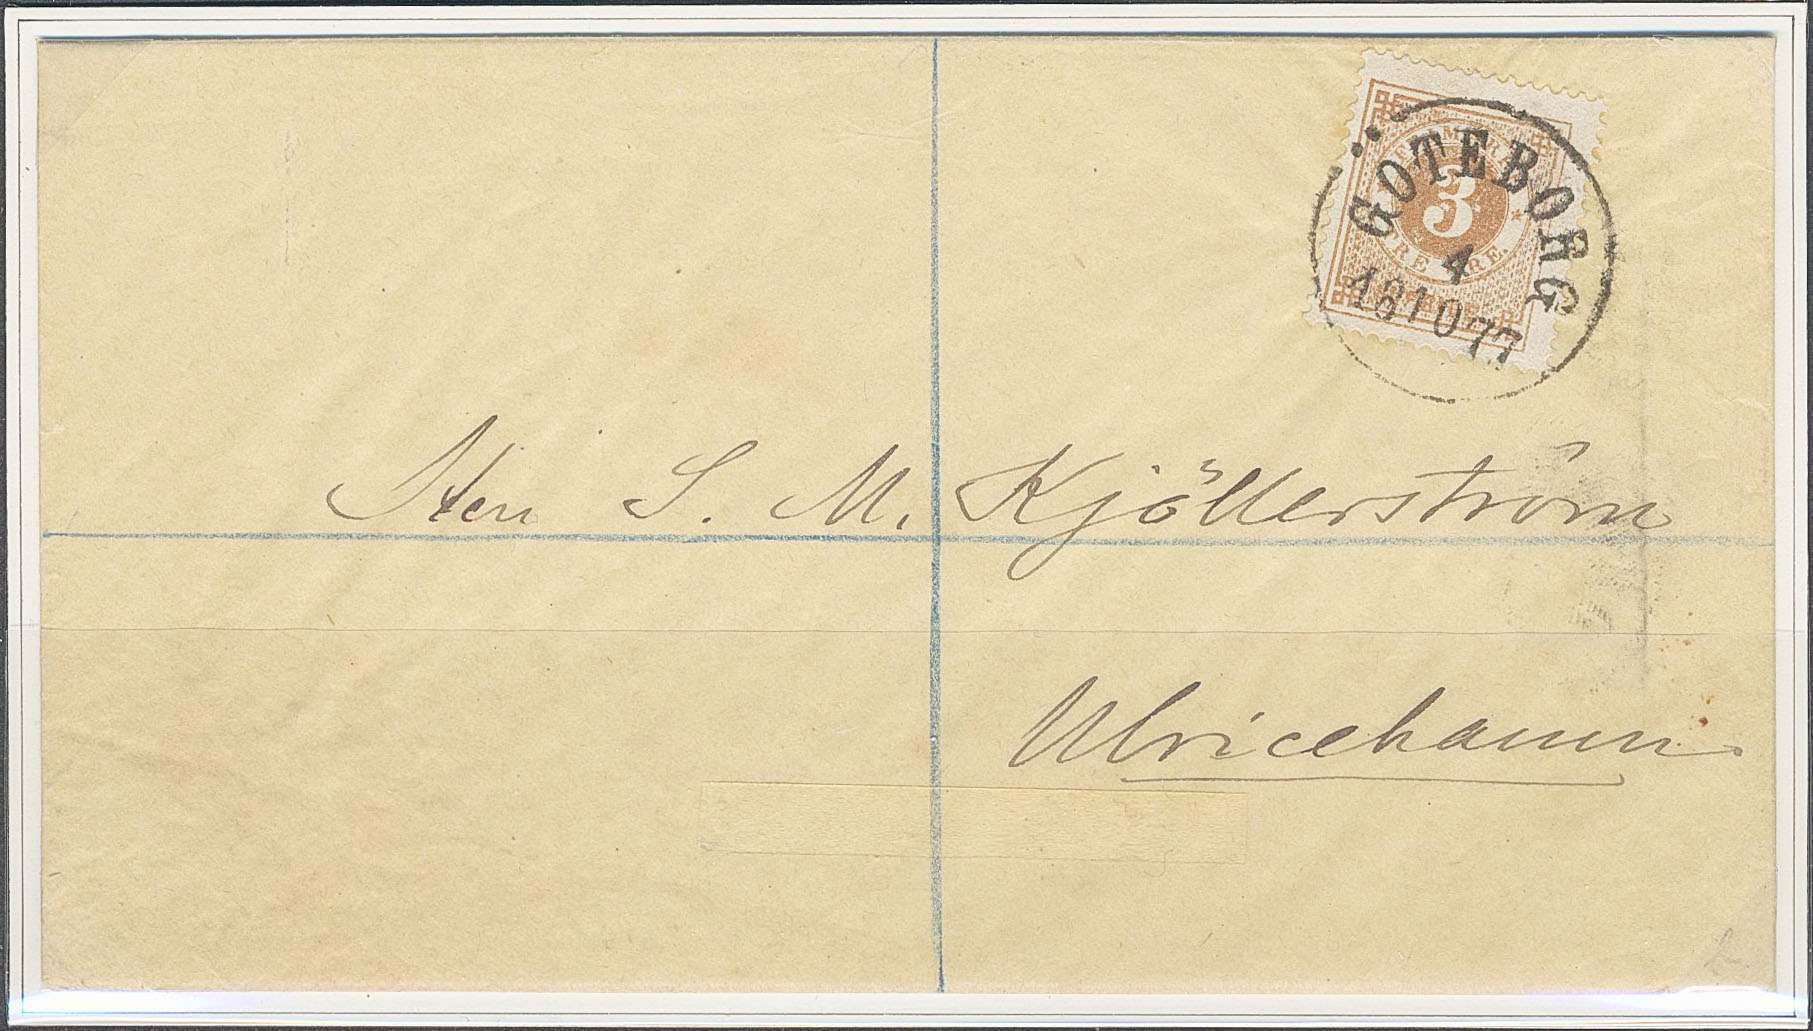 FRIMÄRKE
3
TRE ÖRE.
GÖTEBORG
4
18 10 77
Herr S. M. Kjöllerström
Ulricehamn.